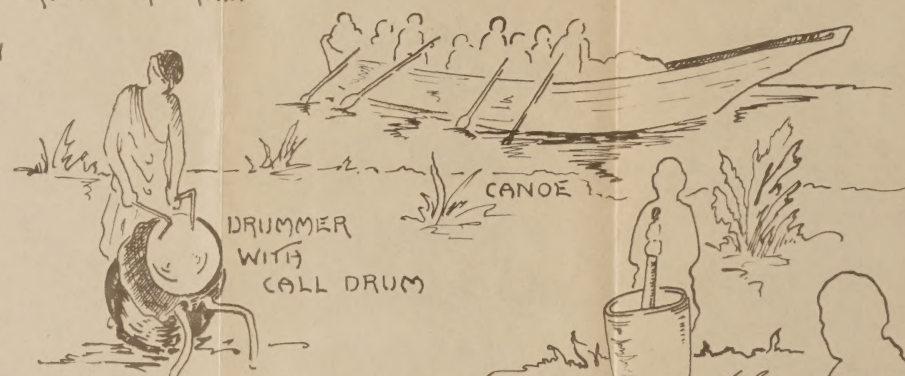 CANOE
DRUMMER
WITH
CALL DRUM